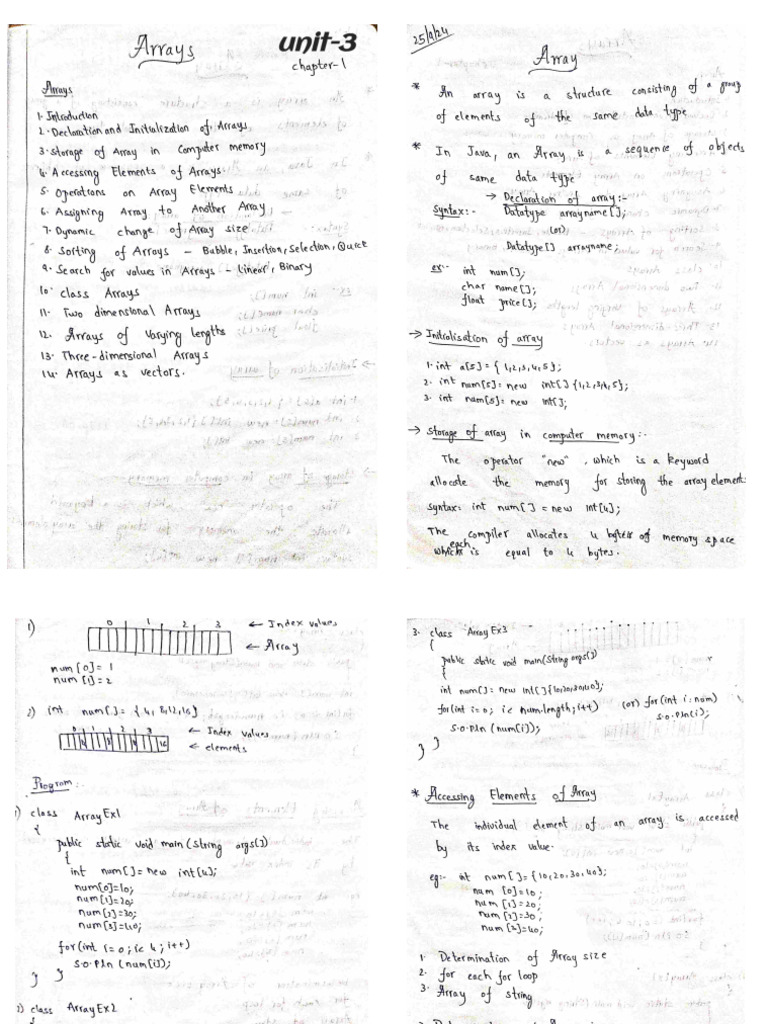 Arrays
unit-3
chapter-1
Arrays
1. Introduction
2. Declaration and Initialization of Arrays
3. Storage of Array in Computer memory
4. Accessing Elements of Arrays
5. Operations on Array Elements
6. Assigning Array to Another Array
7. Dynamic change of Array size
8. Sorting of Arrays - Bubble, Insertion, Selection, Quick
9. Search for values in Arrays - Linear, Binary
10. class Arrays
11. Two dimensional Arrays
12. Arrays of Varying lengths
13. Three-dimensional Arrays
14. Arrays as vectors.
25/9/24
Array
* An array is a structure consisting of a group
of elements of the same data type
* In Java, an Array is a sequence of objects
of same data type
→ Declaration of array:-
Syntax:- Datatype arrayname[];
(or)
Datatype[] arrayname;
ex:- int num[];
char name[];
float price[];
→ Initialisation of array
1. int a[5] = {1,2,3,4,5};
2. int num[5]= new int[]{1,2,3,4,5};
3. int num[5]= new int[];
→ Storage of array in computer memory:-
The operator "new", which is a keyword
allocate the memory for storing the array element
syntax: int num[] = new int[4];
The compiler allocates 4 bytes of memory space
each
which is equal to 4 bytes.
1)
0 1 2 3 ← Index values
← Array
num[0]= 1
num[1]= 2
2) int num[]= {4,8,12,16}
0 1 2 3 ← Index values
← elements
Program:-
1) class ArrayEx1
{
public static void main(String args[])
{
int num[]= new int[4];
num[0]=10;
num[1]=20;
num[2]=30;
num[3]=40;
for(int i=0; i< 4; i++)
S.O.Pln (num[i]);
} }
2) class ArrayEx2
3. class ArrayEx3
{
public static void main(String args[])
{
int num[]= new int[]{10,20,30,40};
for(int i=0; i< num.length; i++) (or) for(int i:num)
S.O.Pln (num[i]); S.O.Pln(i);
} }
* Accessing Elements of Array
The individual element of an array is accessed
by its index value.
eg:- int num[]={10,20,30,40};
num [0]=10;
num [1]=20;
num [2]=30;
num [3]=40;
1. Determination of Array size
2. for each for loop
3. Array of string